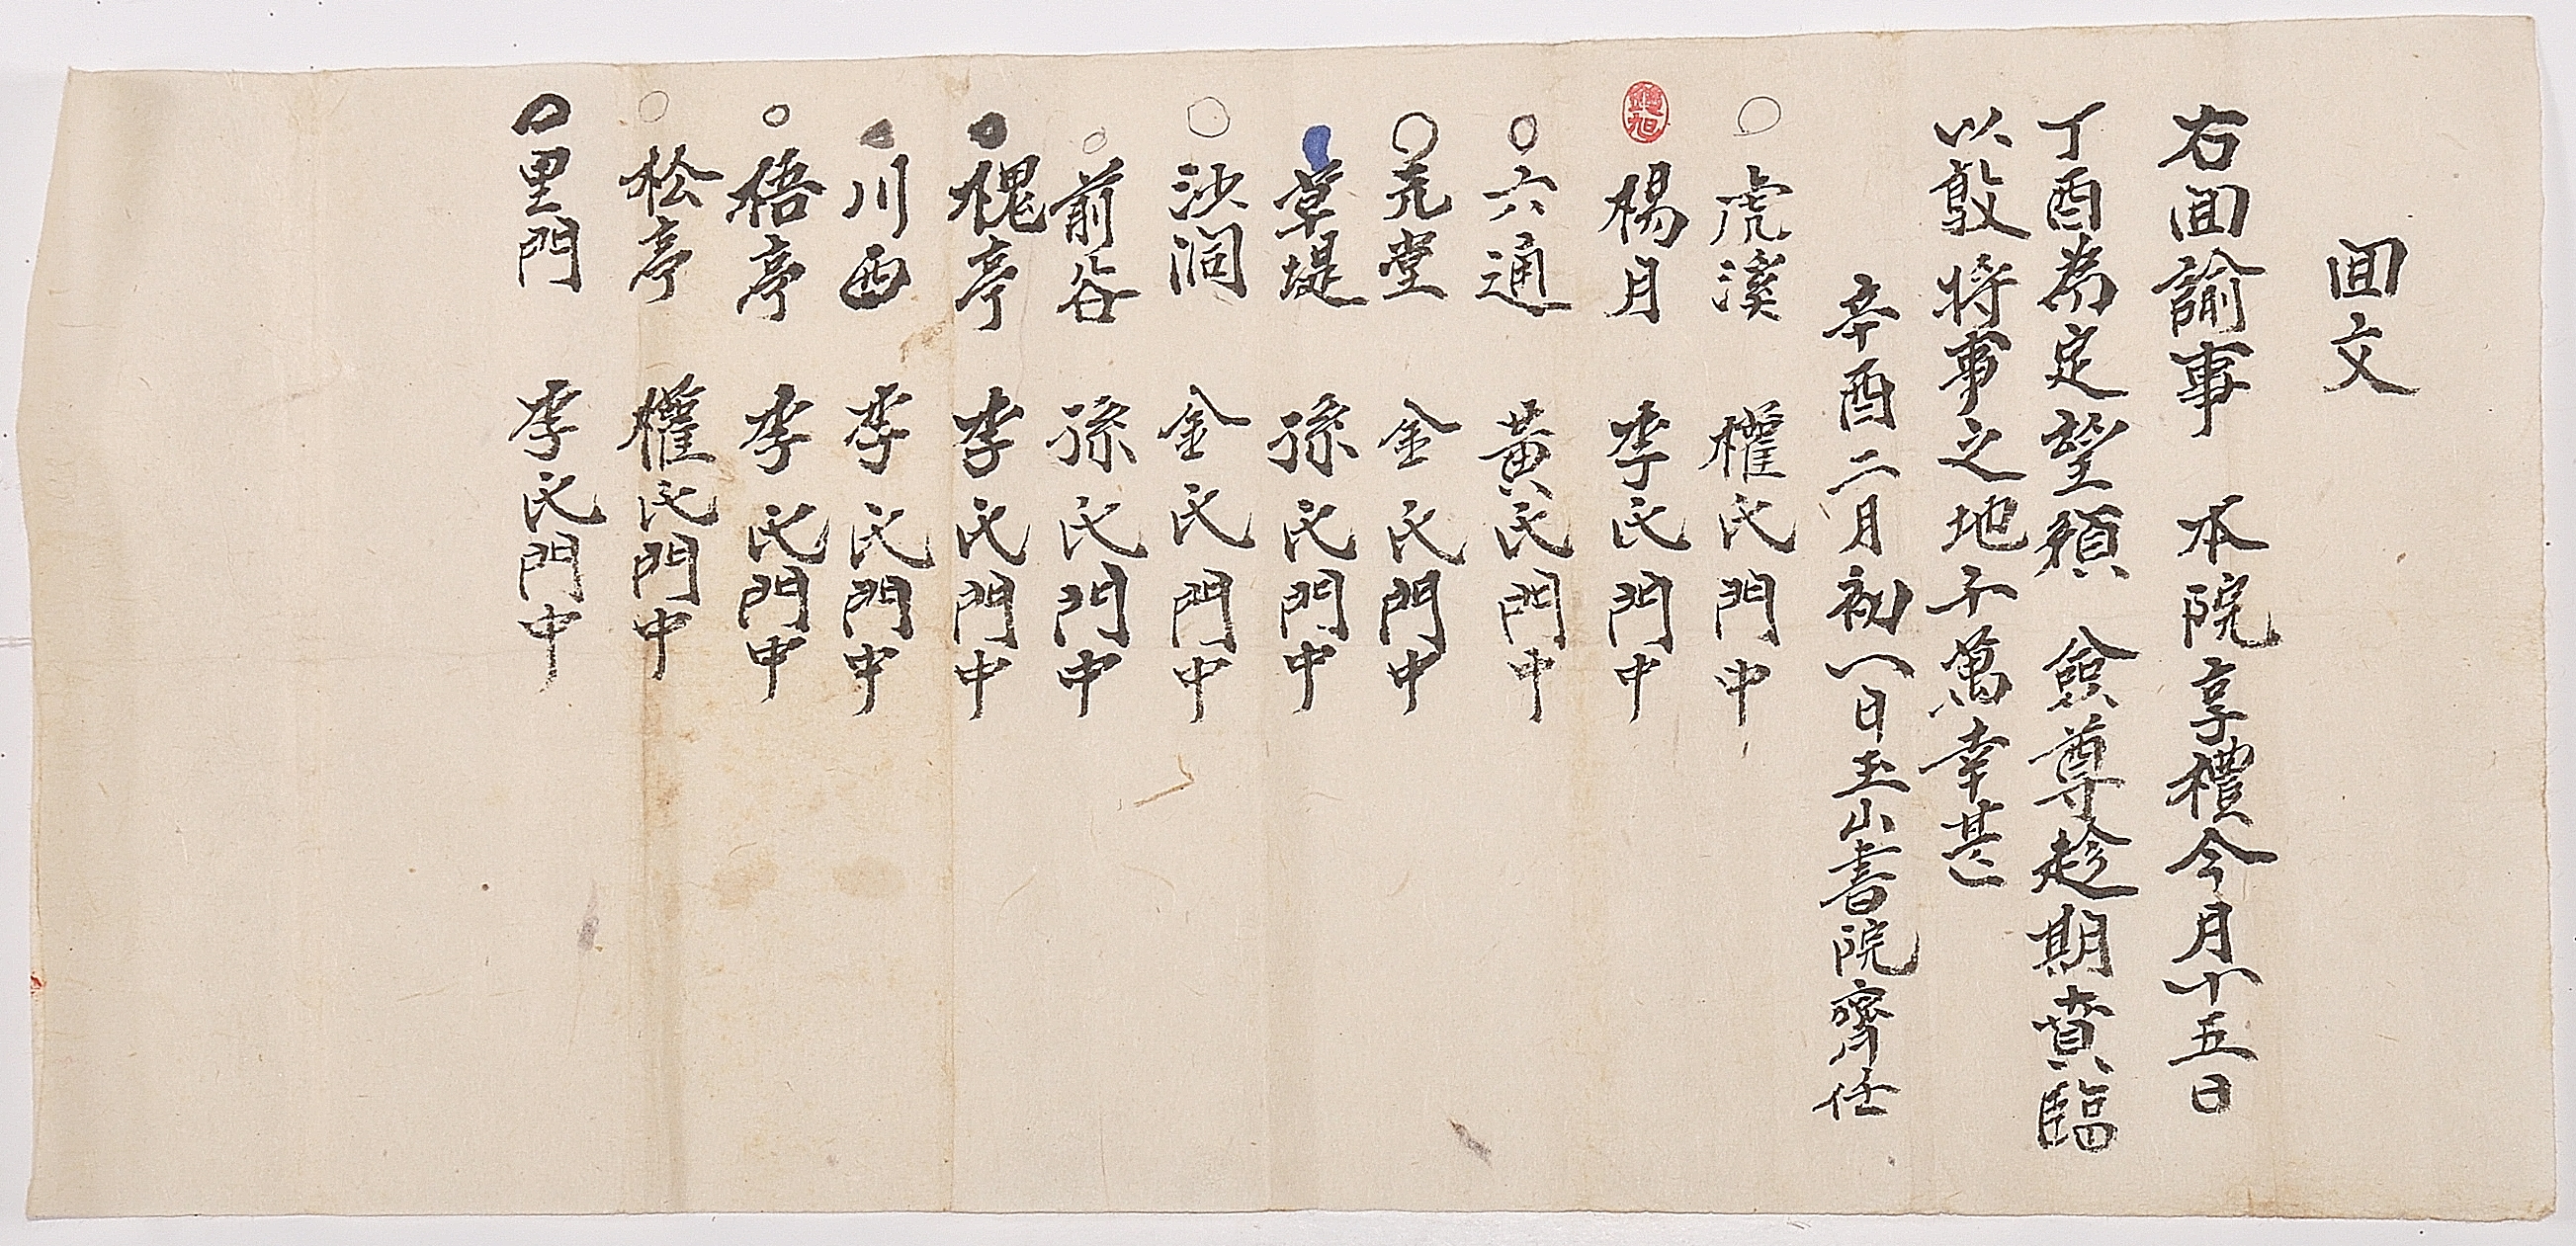 回文
右回諭事 本院享禮今月十五日
丁酉為定望須 僉尊趁期賁臨
以敦將事之地千萬幸甚
辛酉二月初八日玉山書院齊任
虎溪 權氏門中
楊月 李氏門中
六通 黃氏門中
元堂 金氏門中
草堤 孫氏門中
沙洞 金氏門中
前谷 孫氏門中
槐亭 李氏門中
川西 李氏門中
梧亭 李氏門中
松亭 權氏門中
里門 李氏門中